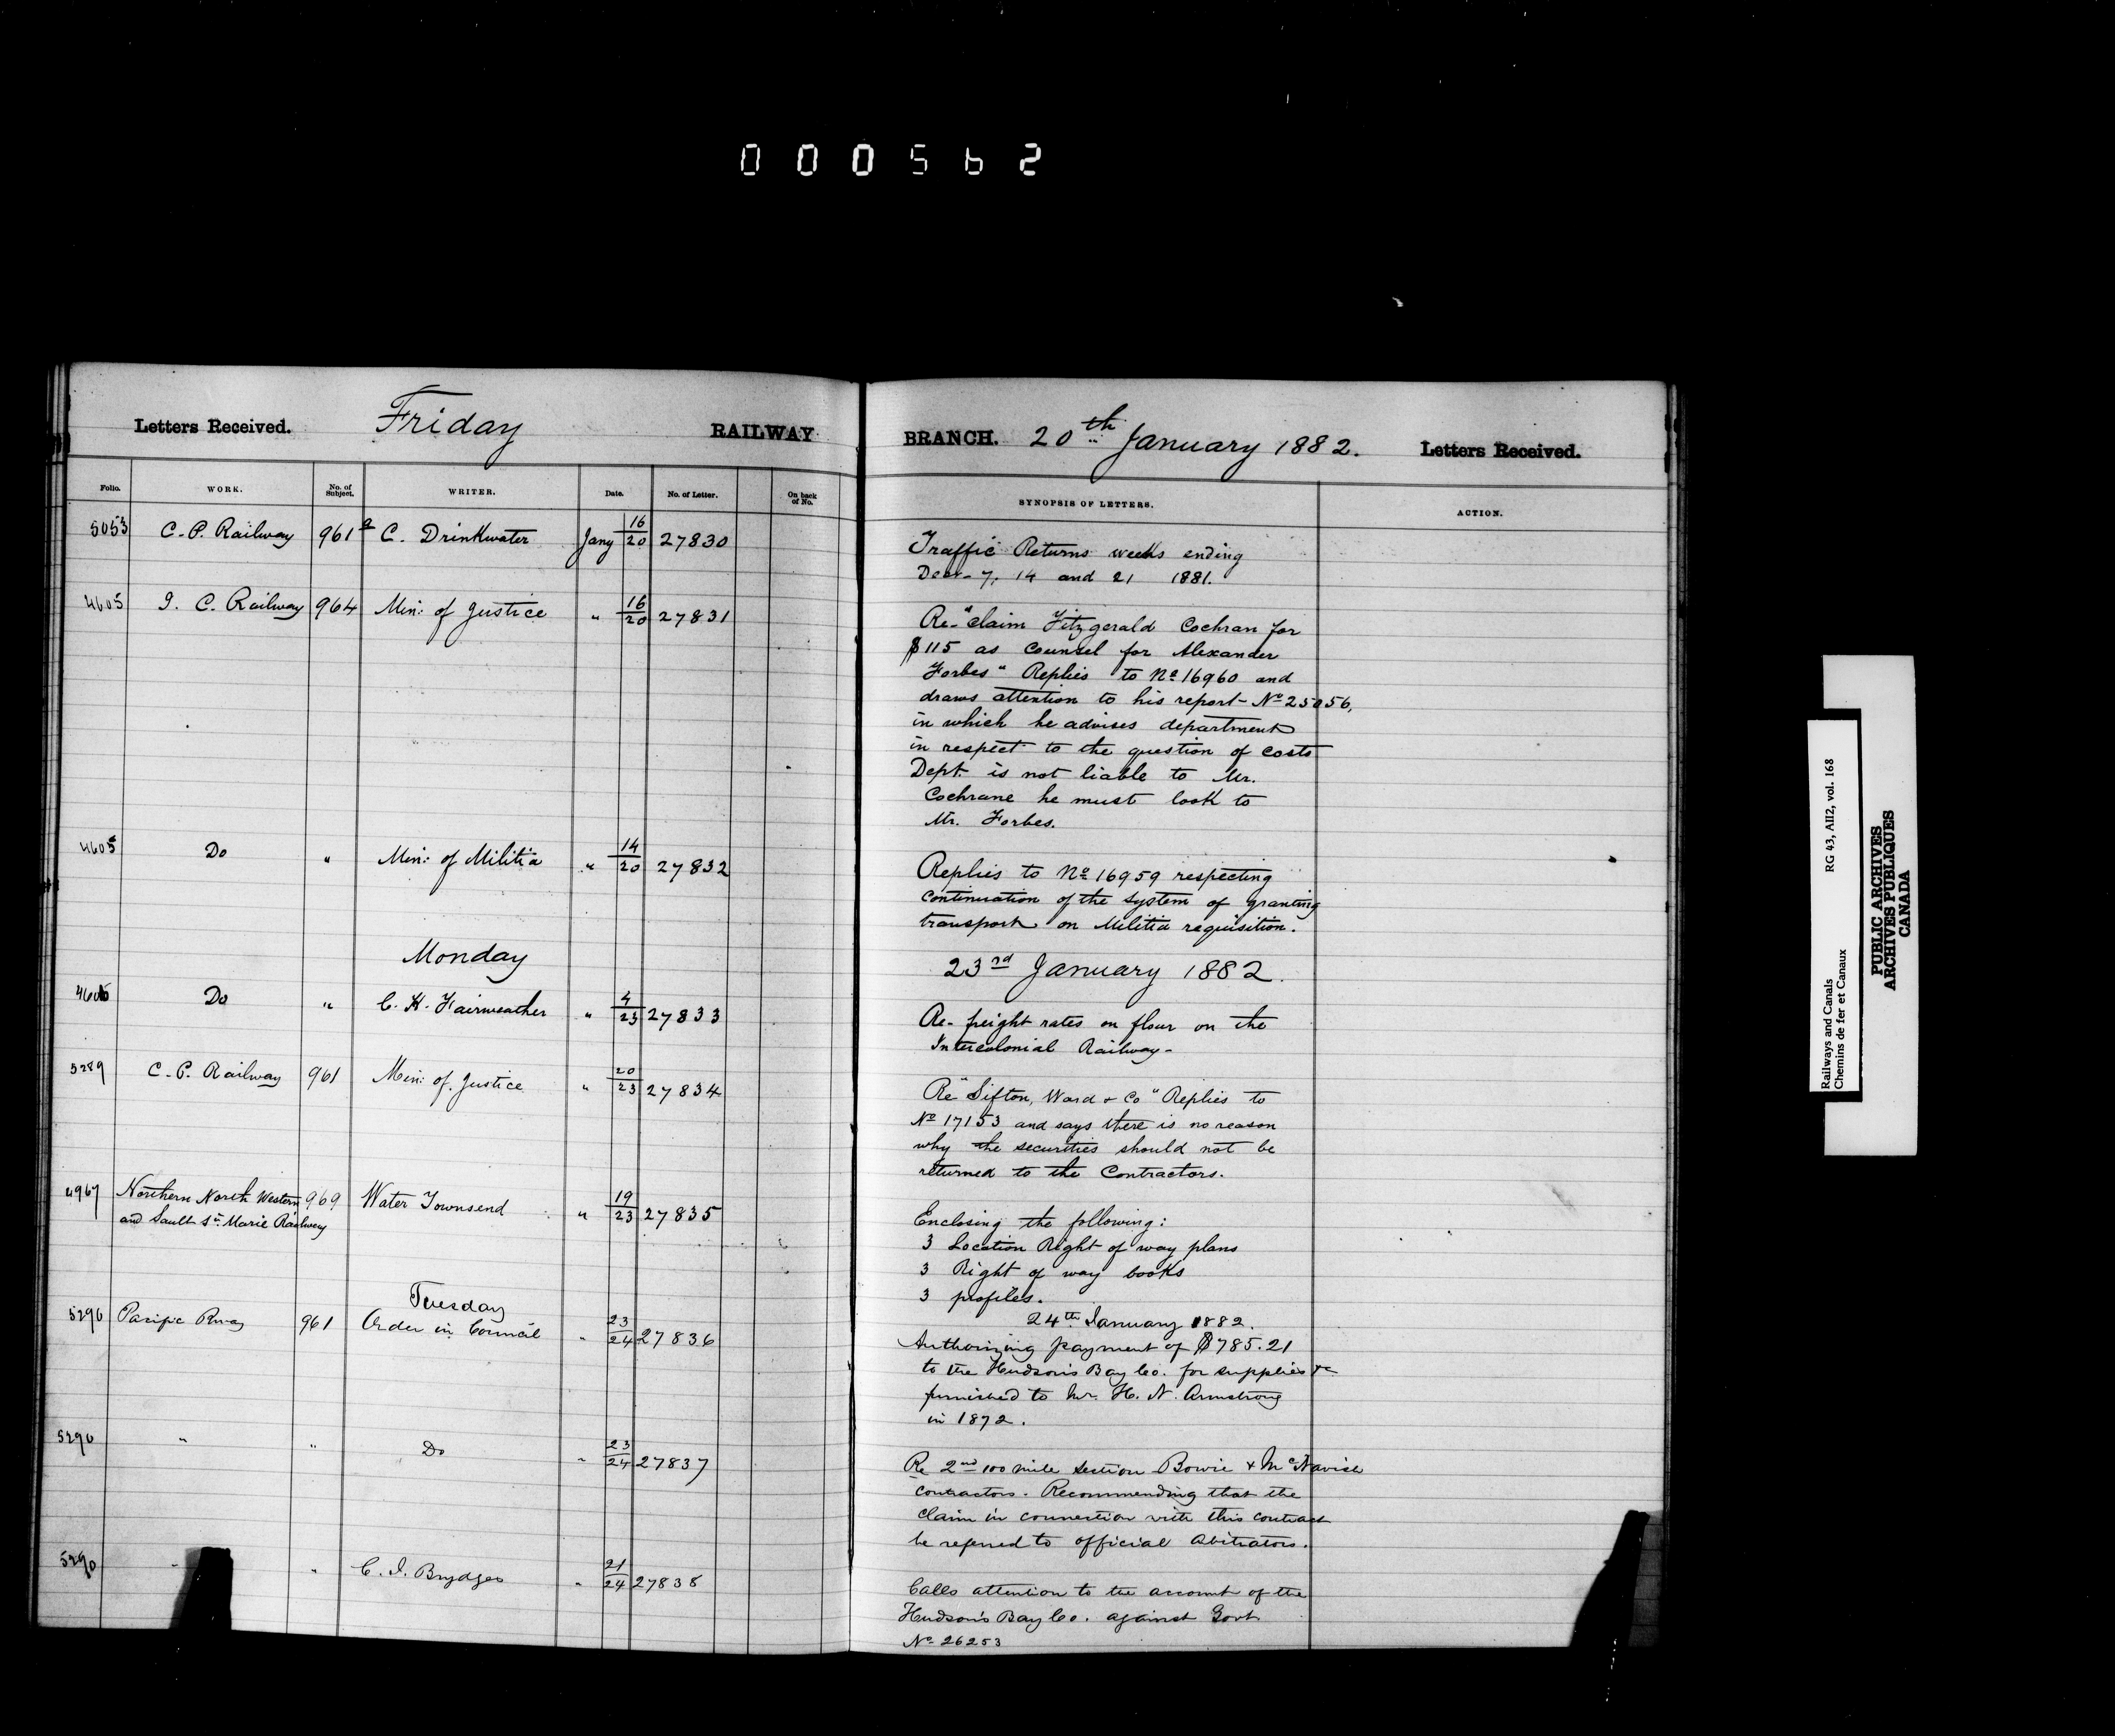 000562
Letters Received. Friday RAILWAY BRANCH. 20th January 1882. Letters Received.
Folio. WORK. No. of Subject. WRITER. Date. No. of Letter. On back of No. SYNOPSIS OF LETTERS. ACTION.
5053 C. P. Railway 961 C. Drinkwater Jany 16/20 27830
Traffic Returns weeks ending
Decr. 7, 14 and 21 1881.
4605 I. C. Railway 964 Min: of Justice " 16/20 27831
Re "claim Fitzgerald Cochran for
$115 as Counsel for Alexander
Forbes" Replies to No 16960 and
draws attention to his report No 25056,
in which he advises department
in respect to the question of costs
Dept. is not liable to Mr.
Cochrane he must look to
Mr. Forbes.
4605 Do " Min: of Militia " 14/20 27832
Replies to No 16959 respecting
continuation of the system of granting
transport on Militia requisition.
Monday 23rd January 1882.
4605 Do " C. H. Fairweather " 4/23 27833
Re- freight rates on flour on the
Intercolonial Railway-
5289 C. P. Railway 961 Min: of Justice " 20/23 27834
Re "Sifton, Ward & Co" Replies to
No 17153 and says there is no reason
why the securities should not be
returned to the Contractors.
4967 Northern North Western 969 Water Townsend " 19/23 27835
and Sault St. Marie Railway
Enclosing the following:
3 Location Right of way plans
3 Right of way books
3 profiles.
Tuesday 24th January 1882.
5290 Pacific Rway 961 Order in Council " 23/24 27836
Authorizing payment of $785.21
to the Hudson's Bay Co. for supplies &c
furnished to Mr. H. N. Armstrong
in 1872.
5290 " " Do " 23/24 27837
Re 2nd 100 mile section Bowie & McNavish
contractors. Recommending that the
claim in connection with this contract
be referred to official Abitrators.
5290 " " C. J. Brydges " 21/24 27838
Calls attention to the account of the
Hudson's Bay Co. against Govt
No 26253
Railways and Canals RG 43, AII2, vol. 168
Chemins de fer et Canaux
PUBLIC ARCHIVES
ARCHIVES PUBLIQUES
CANADA